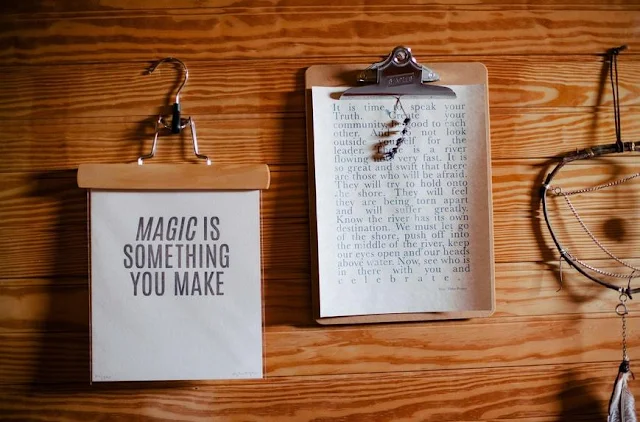 MAGIC IS
SOMETHING
YOU MAKE
It is time to speak your
Truth. Create your
community. Be good to each
other. And do not look
outside yourself for the
leader. There is a river
flowing very fast. It is
so great and swift that there
are those who will be afraid.
They will try to hold onto
the shore. They will feel
they are being torn apart
and will suffer greatly.
Know the river has its own
destination. We must let go
of the shore, push off into
the middle of the river, keep
our eyes open and our heads
above water. Now, see who is
in there with you and
celebrate.